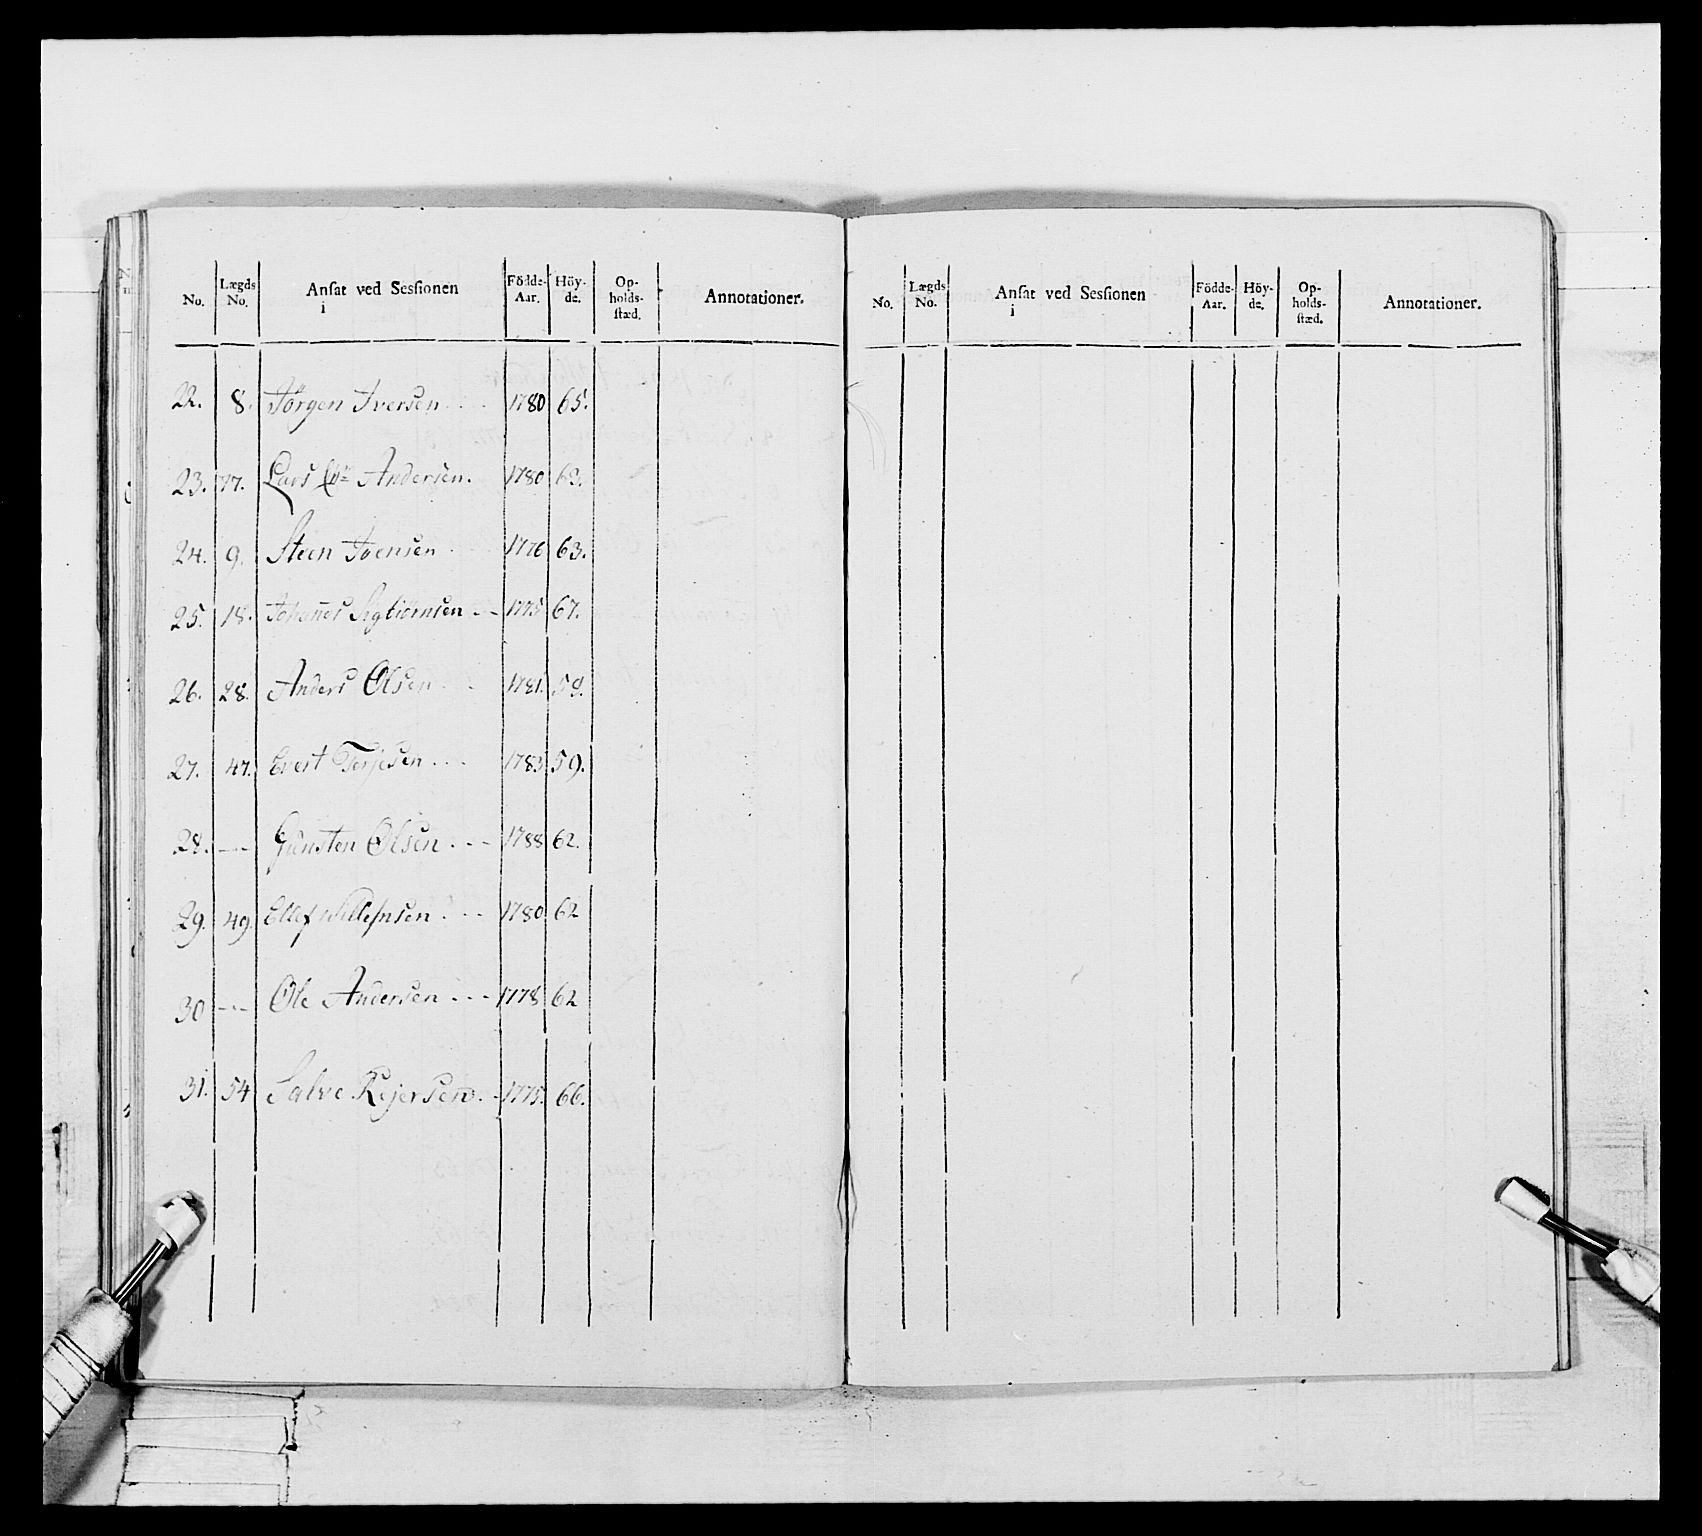 No. Lægds No. Ansat ved Sessionen i Födde-Aar. Höy-de. Op-holds-stæd. Annotationer.
22. 8. Jörgen Iversen . . . 1780 65.
23. 77. Lars Chr Andersen. 1780 63.
24. 9. Steen Ivensen . . 1776 63.
25. 18. Johannes Sigbiörnsen . - 1775 67.
26. 28. Anders Olsen . . . 1781. 59.
27. 47. Evert Terjesen . . . 1783. 59.
28. -- Gunsten Olsen . . - 1788 62.
29. 49. Ellef . . - 1780 62
30 -- Ole Andersen . . - 1778. 62
31. 54 Salve Rejersen. - 1775. 66.
No. Lægds No. Ansat ved Sessionen i Födde-Aar. Höy-de. Op-holds-stæd. Annotationer.